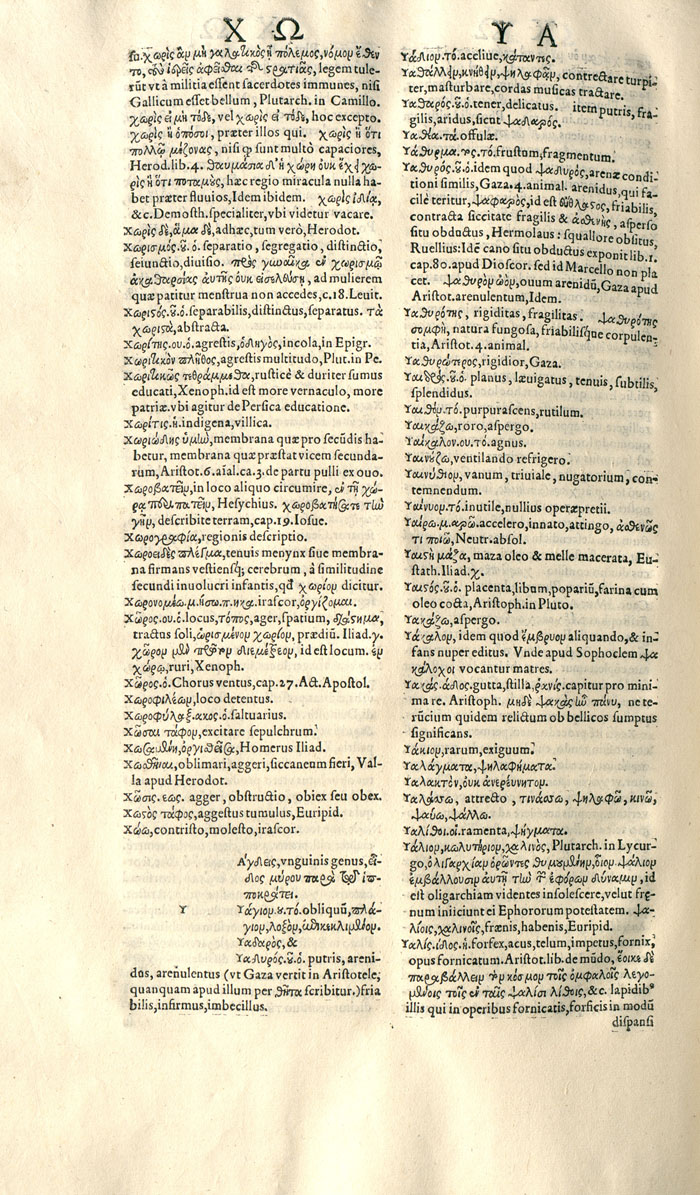 Χ Ω
legem tule-
rūt vt à militia essent sacerdotes immunes, nisi
Gallicum esset bellum, Plutarch. in Camillo.
χωρὶς εἰ μὴ τόδε, vel χωρὶς εἰ τόδε, hoc excepto.
χωρὶς ἢ ὁπόσοι, præter illos qui. χωρὶς ἢ ὅτι
πολλῷ μέζονας, nisi φ sunt multò capaciores,
Herod.lib.4. θαυμάσια
hæc regio miracula nulla ha-
bet præter fluuios, Idem ibidem.
&c. Demosth. specialiter, vbi videtur vacare.
Χωρὶς δὲ, ἅμα δὲ, adhæc, tum verò, Herodot.
Χωρισμός.ȣ.ὁ. separatio, segregatio, distinctio,
seiunctio, diuisio.
ad mulierem
quæ patitur menstrua non accedes, c.18. Leuit.
Χωριστός.ȣ.ὁ. separabilis, distinctus, separatus. τὰ
χωριστὰ, abstracta.
Χωρίτης.ου.ὁ. agrestis, incola, in Epigr.
Χωριτικὸν πλῆθος, agrestis multitudo, Plut. in Pe.
Χωριτικῶς τεθράμμεθα, rusticè & duriter sumus
educati, Xenoph. id est more vernaculo, more
patriæ. vbi agitur de Persica educatione.
Χωρῖτις.ἡ. indigena, villica.
Χωριώδης ὑμὴν, membrana quæ pro secūdis ha-
betur, membrana quæ præstat vicem secunda-
rum, Aristot.6.aīal.ca.3. de partu pulli ex ouo.
Χωροβατεῖν, in loco aliquo circumire, ἐν τῇ χώ-
ρᾳ περιπατεῖν, Hesychius. χωροβατήσατε τὴν
γῆν, describite terram, cap.19. Iosue.
Χωρογραφία, regionis descriptio.
Χωροειδὲς πλέγμα, tenuis menynx siue membra-
na firmans vestiensq; cerebrum, à similitudine
secundi inuolucri infantis, qd χωρίον dicitur.
Χωρονομέω.μ.ήσω.π.ηκα. irascor, ὀργίζομαι.
Χῶρος.ου.ὁ. locus, τόπος, ager, spatium, διάστημα,
tractus soli, ὡρισμένον χωρίον, prædiū. Iliad.γ.
χῶρον μὲν πρῶτον διεμέτρεον, id est locum. ἐν
χώρῳ, ruri, Xenoph.
Χῶρος.ὁ. Chorus ventus, cap.27. Act. Apostol.
Χωροφιλέων, loco detentus.
Χωροφύλαξ.ακος.ὁ. saltuarius.
Χῶσαι τάφον, excitare sepulchrum.
Χωσαμένη, ὀργισθεῖσα, Homerus Iliad.
Χωσθῆναι, oblimari, aggeri, siccaneum fieri, Val-
la apud Herodot.
Χῶσις.εως. agger, obstructio, obiex seu obex.
Χωστὸς τάφος, aggestus tumulus, Euripid.
Χώω, contristo, molesto, irascor.
vnguinis genus, εἶ-
δος μύρου παρὰ τῷ ἱπ-
ποκράτει.
Ψ Ψάγιον.ȣ.τό. obliquū, πλά-
γιον, λοξὸν, ἐπικεκλιμένον.
Ψαδαρὸς, &
Ψαδυρός.ȣ.ὁ. putris, areni-
dus, arenulentus (vt Gaza vertit in Aristotele,
quanquam apud illum per θῆτα scribitur.) fria
bilis, infirmus, imbecillus.
Ψ Α
Ψάδιον.τό. acliue, κάταντες.
Ψαθάλλειν, κνήθειν, ψηλαφᾶν, contrectare turpi-
ter, masturbare, cordas musicas tractare.
Ψαθαρός.ȣ.ὁ. tener, delicatus. item putris, fra-
gilis, aridus, sicut ψαδαρός.
Ψαθία.τά. offulæ.
Ψάθυρμα.τος.τό. frustum, fragmentum.
Ψαθυρός.ȣ.ὁ. idem quod ψαδυρὸς, arenæ condi-
tioni similis, Gaza.4. animal. arenidus, qui fa-
cile teritur, ψαφαρὸς, id est εὔθλαστος, friabilis,
contracta siccitate fragilis & ἀσθενὴς, asperso
situ obductus, Hermolaus: squallore obsitus,
Ruellius: Idē cano situ obductus exponit lib.1.
cap.80. apud Dioscor. sed id Marcello non pla
cet. ψαθυρὸν ὠὸν, ouum arenidū, Gaza apud
Aristot. arenulentum, Idem.
Ψαθυρότης, rigiditas, fragilitas. ψαθυρότης
σομφὴ, natura fungosa, friabilisque corpulen-
tia, Aristot.4. animal.
Ψαθυρώτερος, rigidior, Gaza.
Ψαιδρός.ȣ.ὁ. planus, læuigatus, tenuis, subtilis,
splendidus.
purpurascens, rutilum.
Ψαικάζω, roro, aspergo.
Ψαίκαλον.ου.τό. agnus.
Ψαινύζω, ventilando refrigero.
Ψαινύθιον, vanum, triuiale, nugatorium, con-
temnendum.
Ψαίνυον.τό. inutile, nullius operæpretii.
Ψαίρω.μ.αρῶ. accelero, innato, attingo, ἀσθενῶς
τι ποιῶ, Neutr. absol.
Ψαιστὴ μάζα, maza oleo & melle macerata, Eu-
stath. Iliad.χ.
Ψαιστός.ȣ.ὁ. placenta, libum, popariū, farina cum
oleo cocta, Aristoph. in Pluto.
Ψακάζω, aspergo.
Ψάκαλον, idem quod ἔμβρυον aliquando, & in-
fans nuper editus. Vnde apud Sophoclem ψα
κάλοχοι vocantur matres.
Ψακάς.άδος. gutta, stilla, ῥανίς. capitur pro mini-
ma re. Aristoph. ne te-
rūcium quidem relictum ob bellicos sumptus
significans.
Ψάκιον, rarum, exiguum.
Ψαλάγματα, ψηλαφήματα.
Ψαλακτὸν, οὐκ ἀνερεύνητον.
Ψαλάσσω, attrecto, τινάσσω, ψηλαφῶ, κινῶ,
ψαύω, ψάλλω.
Ψαλίθοι.οἱ. ramenta, ψήγματα.
Ψάλιον, κωλυτήριον, χαλινὸς, Plutarch. in Lycur-
go, ὀλιγαρχίαν ὁρῶντες θυμουμένην, οἷον ψάλιον
ἐμβάλλουσιν αὐτῇ τὴν τῶν ἐφόρων δύναμιν, id
est oligarchiam videntes insolescere, velut fræ-
num iniiciunt ei Ephororum potestatem. ψα-
λίοις, χαλινοῖς, frænis, habenis, Euripid.
Ψαλίς.ίδος.ἡ. forfex, acus, telum, impetus, fornix,
opus fornicatum. Aristot. lib. de mūdo, ἔοικε δὲ
παραβάλλειν τὸν κόσμον τοῖς ὀμφαλοῖς λεγο-
μένοις τοῖς ἐν ταῖς ψαλίσι λίθοις, &c. lapidib⁹
illis qui in operibus fornicatis, forficis in modū
dispansi